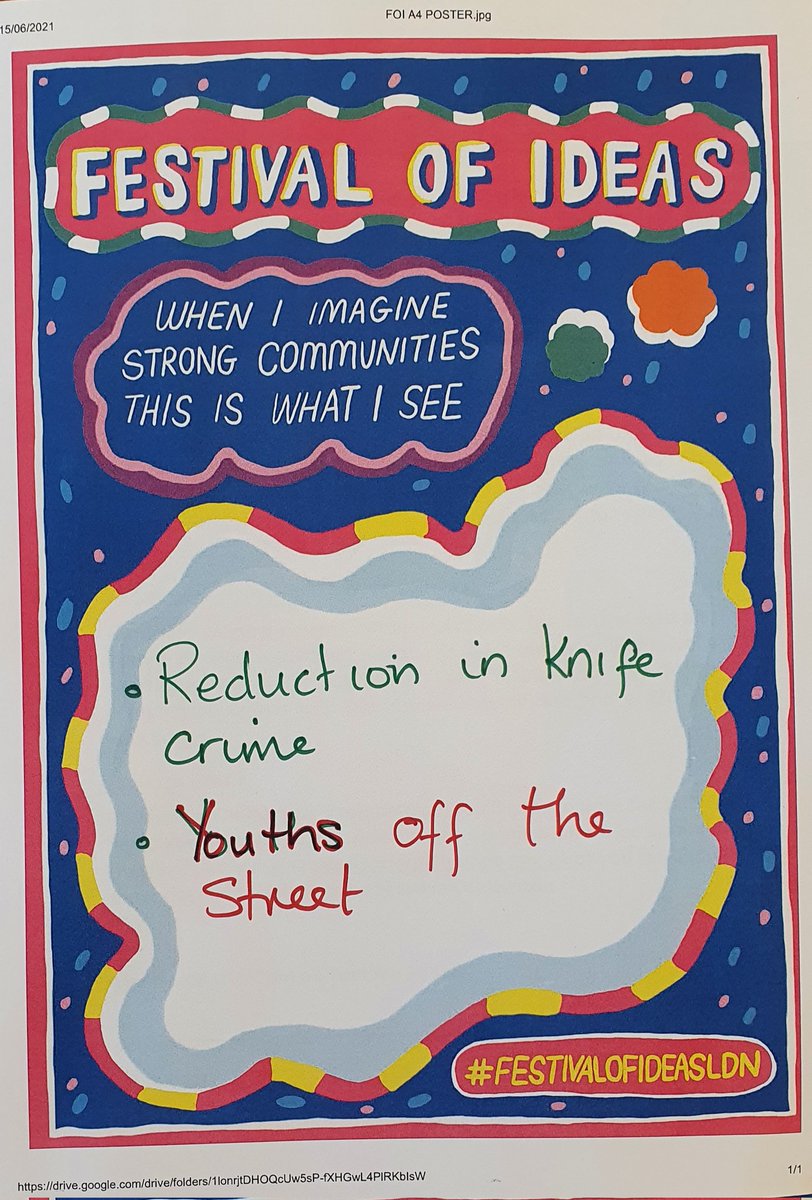 15/06/2021
FOI A4 POSTER.jpg
FESTIVAL OF IDEAS
WHEN I IMAGINE
STRONG COMMUNITIES
THIS IS WHAT I SEE
• Reduction in knife
crime
• Youths off the
Street
#FESTIVALOFIDEASLDN
https://drive.google.com/drive/folders/1IonrjtDHOQcUw5sP-fXHGwL4PlRKbIsW
1/1